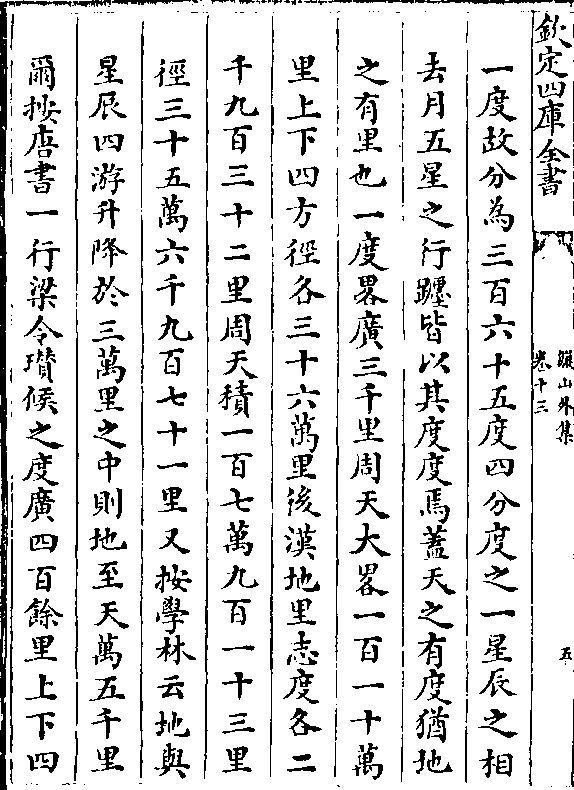 欽定四庫全書
嚴山外集
卷十三
五
一度故分為三百六十五度四分度之一星辰之相
去月五星之行躔皆以其度度焉蓋天之有度猶地
之有里也一度畧廣三千里周天大畧一百一十萬
里上下四方徑各三十六萬里後漢地里志度各二
千九百三十二里周天積一百七萬九百一十三里
徑三十五萬六千九百七十一里又按學林云地與
星辰四游升降於三萬里之中則地至天萬五千里
爾按唐書一行梁令瓚候之度廣四百餘里上下四